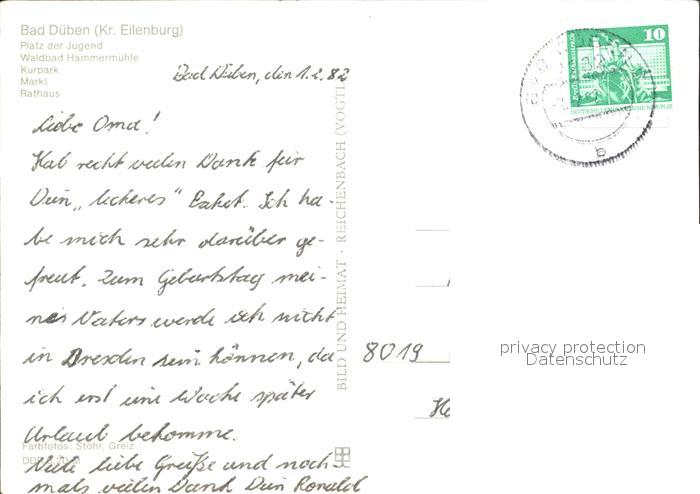 Bad Düben (Kr. Eilenburg)
Platz der Jugend
Waldbad Hammermühle
Kurpark
Markt
Rathaus
Bad Düben, den 1.2.82
Liebe Oma!
Hab recht vielen Dank für
Dein „leckeres" Paket. Ich ha-
be mich sehr darüber ge-
freut. Zum Geburtstag mei-
nes Vaters werde ich nicht
in Dresden sein können, da
ich erst eine Woche später
Urlaub bekomme.
Viele liebe Grüße und noch-
mals vielen Dank Dein Ronald
Farbfotos: Stöhr, Greiz
BILD UND HEIMAT · REICHENBACH (VOGTL
10
DEUTSCHE DEMOKRATISCHE REPUBLIK
b
8019
privacy protection
Datenschutz